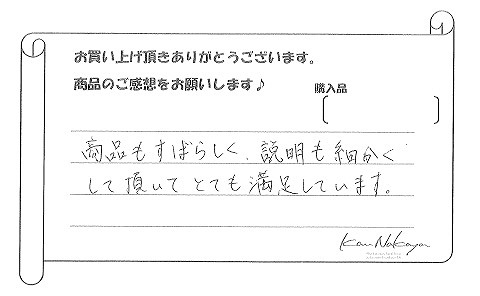 お買い上げ頂きありがとうございます。
商品のご感想をお願いします♪
購入品
商品もすばらしく、説明も細かく
して頂いてとても満足しています。
Kan Nakaya